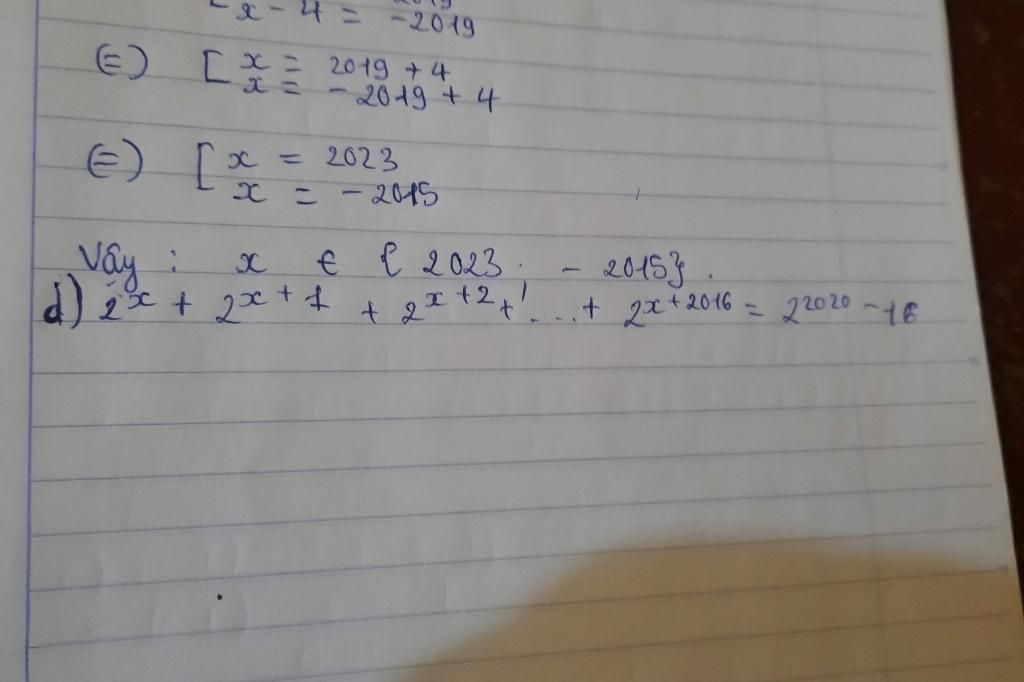 x - 4 = -2019
(=) [ x = 2019 + 4
x = -2019 + 4
(=) [ x = 2023
x = -2015
Vậy : x ∈ { 2023. - 2015}.
d) 2^x + 2^{x+1} + 2^{x+2} + ... + 2^{x+2016} = 2^{2020} - 16